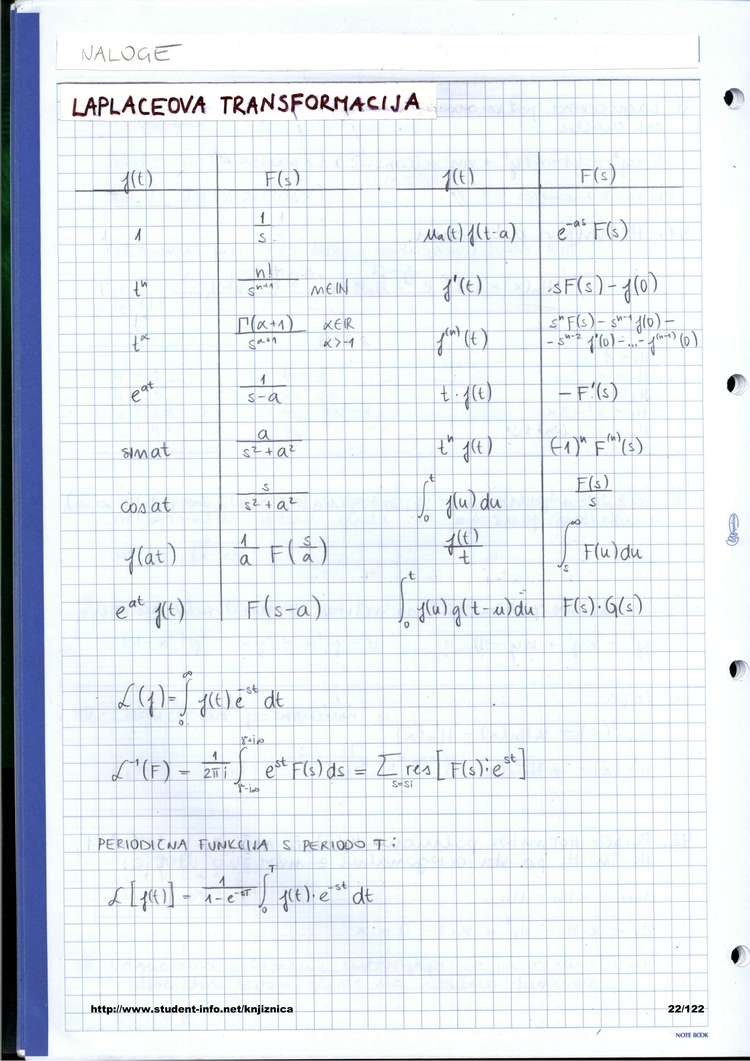 NALOGE
LAPLACEOVA TRANSFORMACIJA
f(t) F(s) f(t) F(s)
1 1/s u_a(t) f(t-a) e^{-as} F(s)
t^n n!/s^{n+1} n∈ℕ f'(t) sF(s) - f(0)
t^α Γ(α+1)/s^{α+1} α∈ℝ α>-1 f^{(n)}(t) s^n F(s) - s^{n-1} f(0) - - s^{n-2} f'(0) - ... - f^{(n-1)}(0)
e^{at} 1/(s-a) t·f(t) -F'(s)
sin at a/(s²+a²) t^n f(t) (-1)^n F^{(n)}(s)
cos at s/(s²+a²) ∫_0^t f(u) du F(s)/s
f(at) 1/a F(s/a) f(t)/t ∫_s^∞ F(u) du
e^{at} f(t) F(s-a) ∫_0^t f(u) g(t-u) du F(s)·G(s)
ℒ(f) = ∫_0^∞ f(t) e^{-st} dt
ℒ^{-1}(F) = 1/(2πi) ∫_{γ-i∞}^{γ+i∞} e^{st} F(s) ds = Σ_{s=si} res [F(s); e^{st}]
PERIODIČNA FUNKCIJA S PERIODO T:
ℒ[f(t)] = 1/(1-e^{-sT}) ∫_0^T f(t)·e^{-st} dt
http://www.student-info.net/knjiznica 22/122
NOTE BOOK